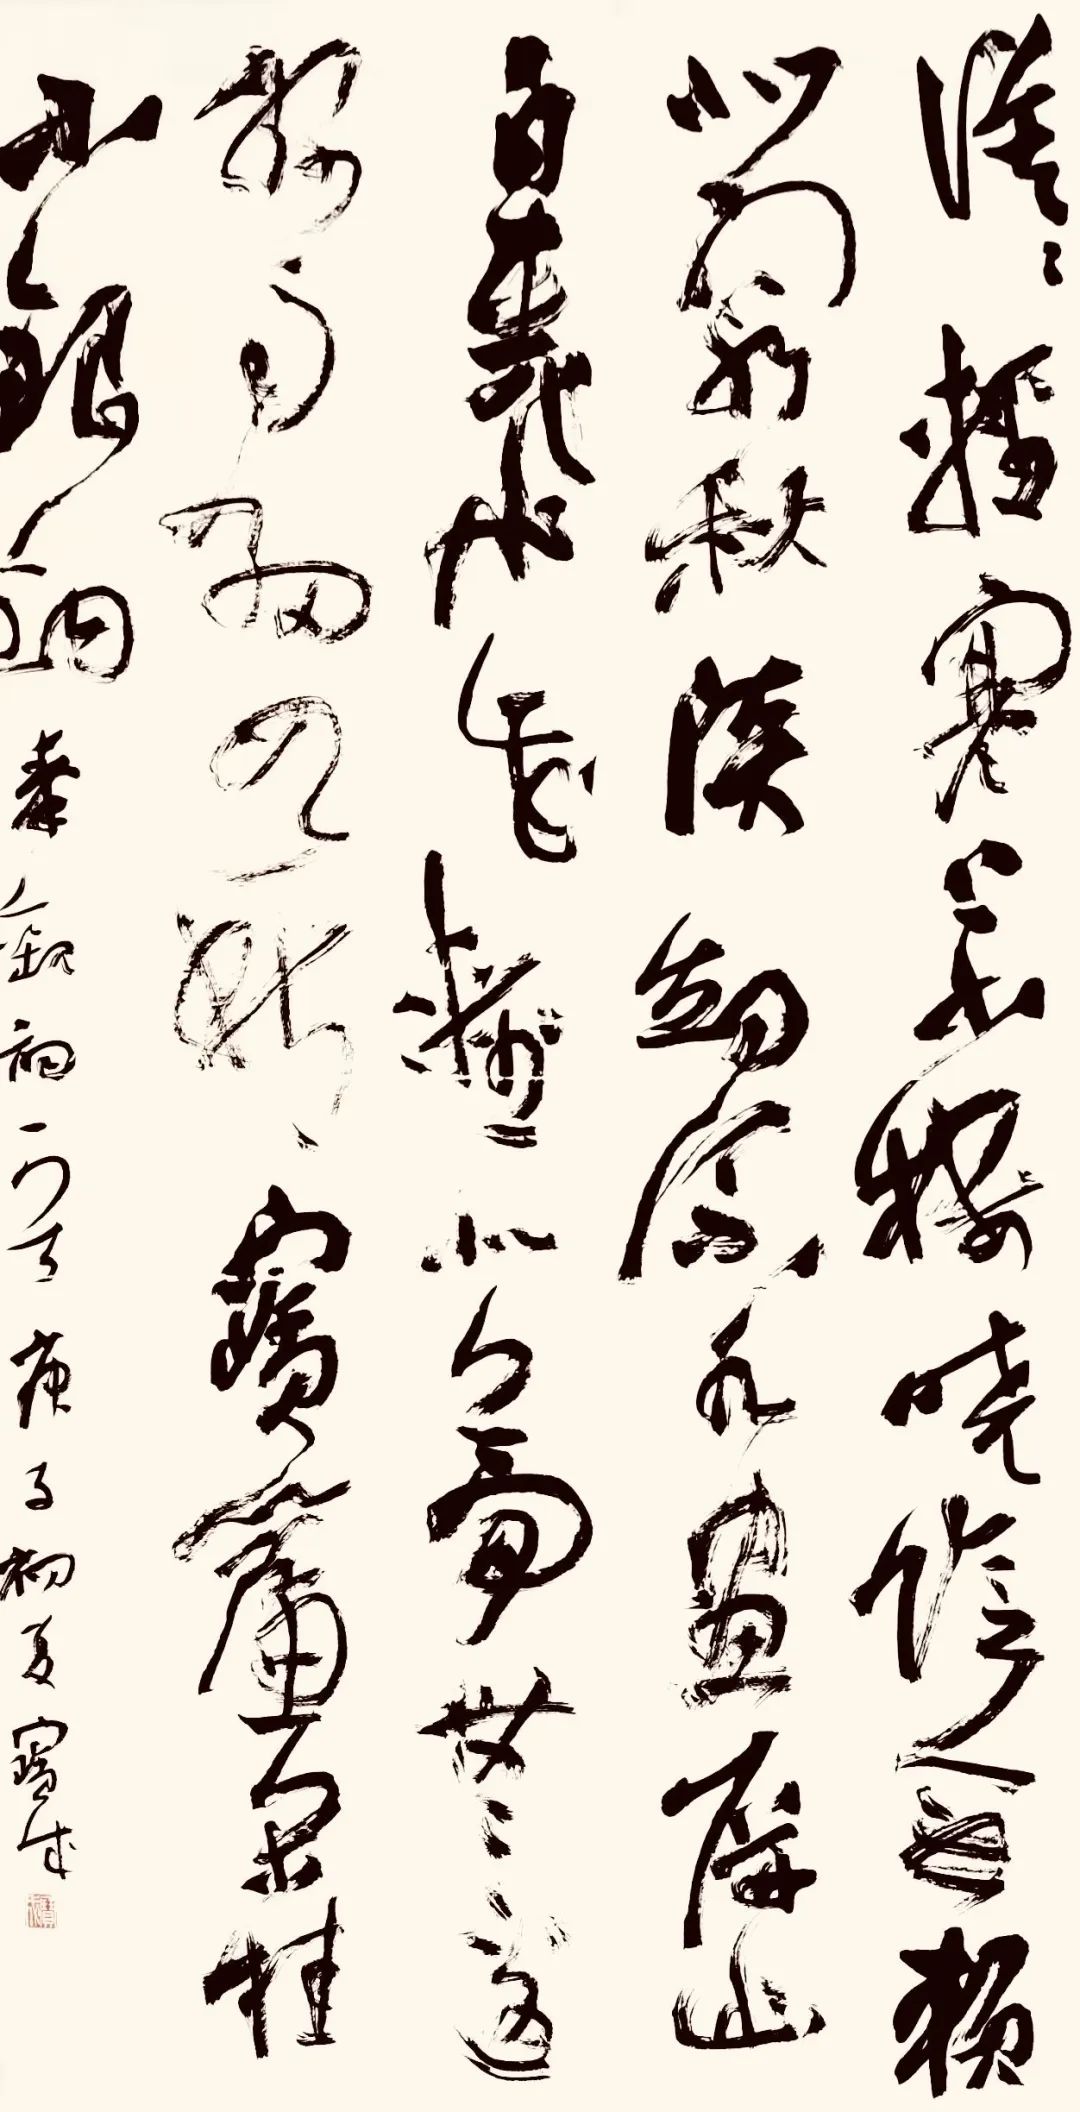 漠〻輕寒上小樓曉陰無賴
似窮秋淡煙流水畫屏幽
自在飛花輕似夢無邊
絲雨細如愁寶簾閑挂
小銀鉤 秦觀詞一首 庚子初夏 寶成